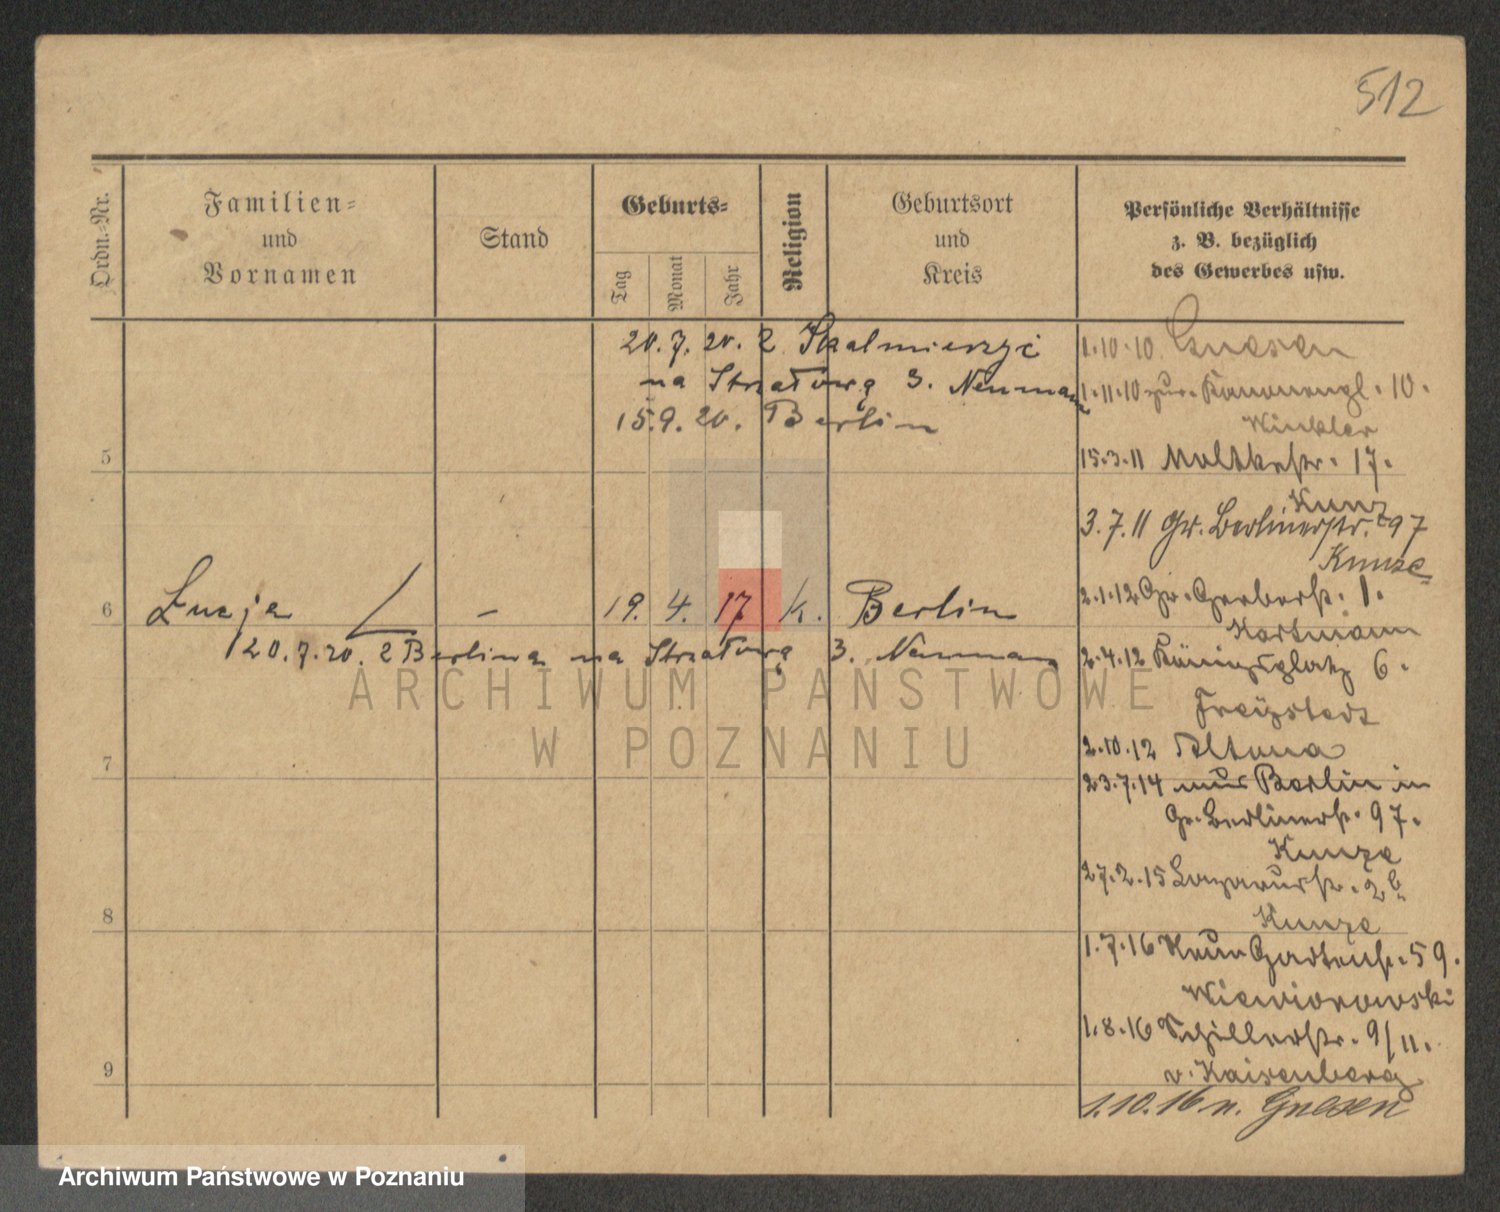 512
Ordn.-Nr.
Familien-
und
Vornamen
Stand
Geburts-
Tag
Monat
Jahr
Religion
Geburtsort
und
Kreis
Persönliche Verhältnisse
z. B. bezüglich
des Gewerbes usw.
20.7.20. z Skalmierzyc
na Strzałową 3. Neumann
15.9.20. Berlin
5
6
Lucja - 19. 4. 17 k. Berlin
20.7.20. z Berlina na Strzałową 3. Neumann
7
8
9
1.10.10. Gnesen
1.11.10 zur. Kanonengl. 10.
Winkler
15.3.11 Moltkestr. 17.
Kunz
3.7.11 Gr. Berlinerstr. 97
Kunze
2.1.12 Gr. Gerberstr. 1.
Hartmann
2.4.12 Königsplatz 6.
2.10.12 Altona
23.7.14 aus Berlin in
Gr. Berlinerstr. 97.
Kunze
27.2.15 Lazarusstr. 2b
Kunze
1.7.16 Neue Gartenstr. 59.
Wiewiorowski
1.8.16 Schillerstr. 9/II.
v. Kaisenberg
1.10.16 n. Gnesen
ARCHIWUM PAŃSTWOWE
W POZNANIU
Archiwum Państwowe w Poznaniu